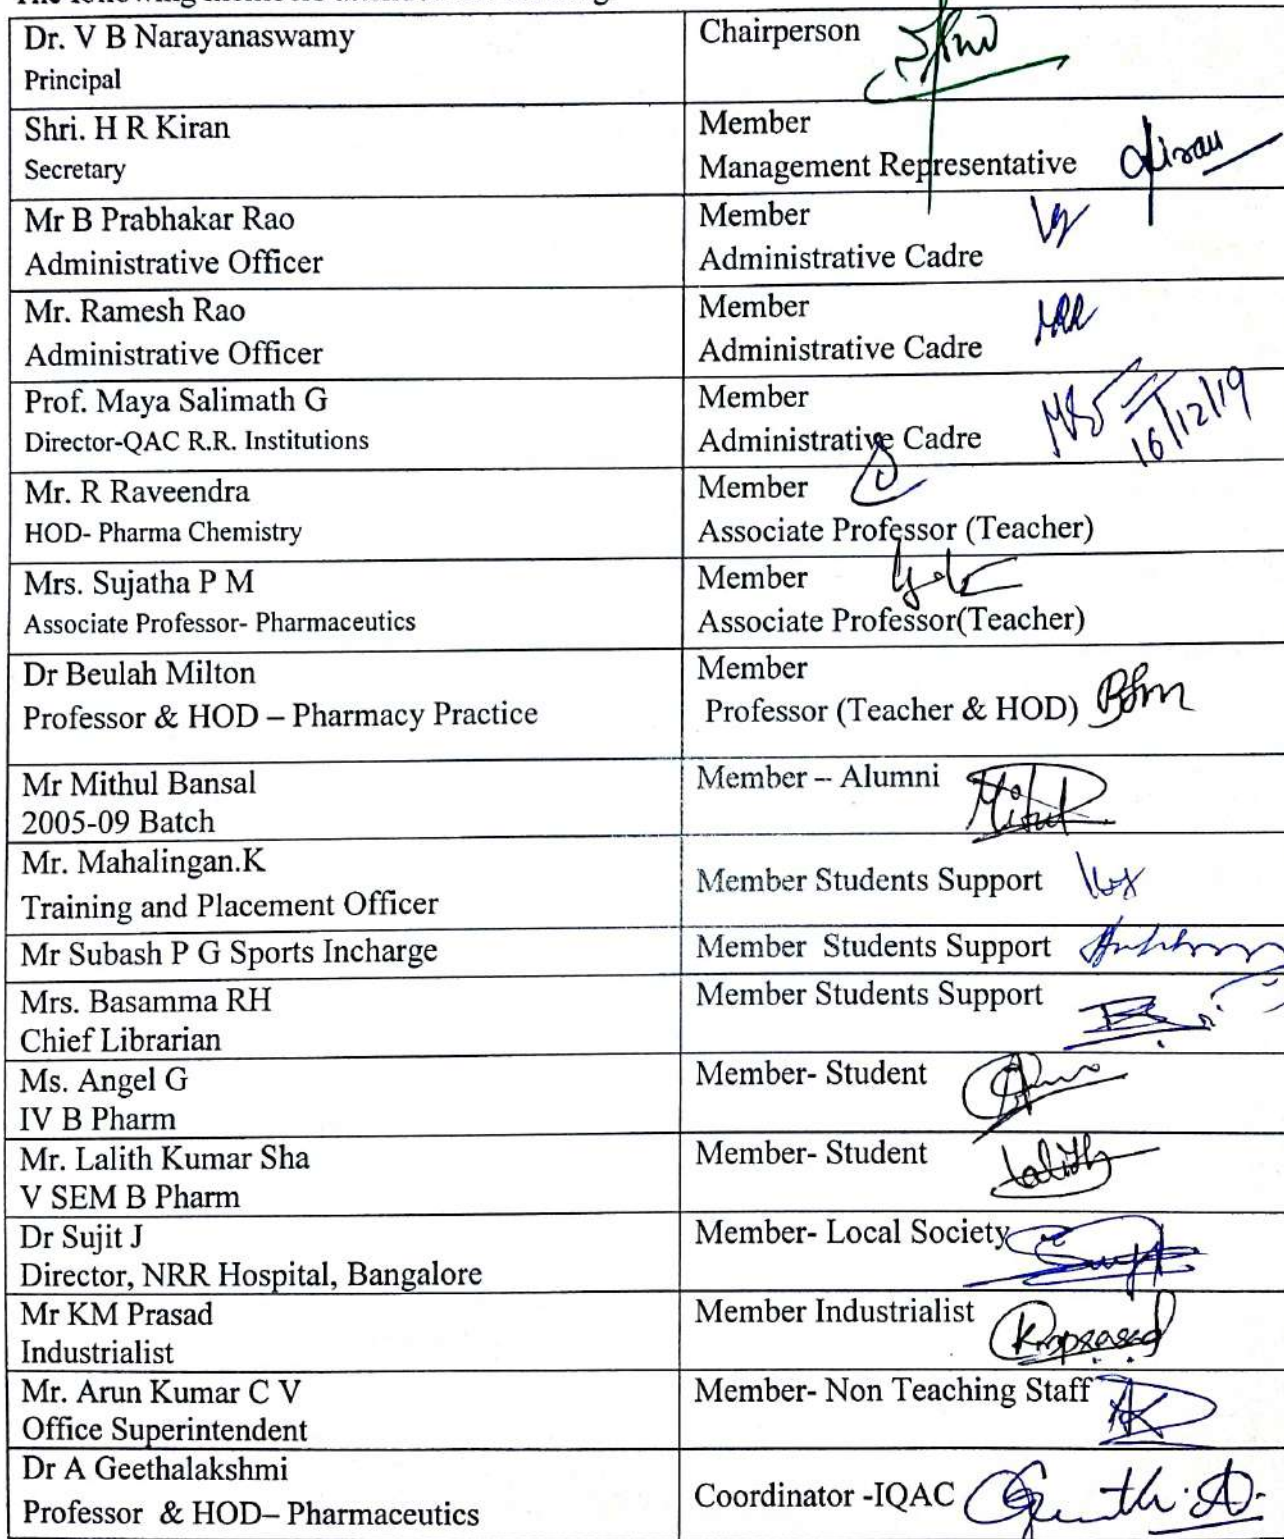 Dr. V B Narayanaswamy
Principal
Chairperson
Shri. H R Kiran
Secretary
Member
Management Representative
Mr B Prabhakar Rao
Administrative Officer
Member
Administrative Cadre
Mr. Ramesh Rao
Administrative Officer
Member
Administrative Cadre
Prof. Maya Salimath G
Director-QAC R.R. Institutions
Member
Administrative Cadre
16/12/19
Mr. R Raveendra
HOD- Pharma Chemistry
Member
Associate Professor (Teacher)
Mrs. Sujatha P M
Associate Professor- Pharmaceutics
Member
Associate Professor(Teacher)
Dr Beulah Milton
Professor & HOD – Pharmacy Practice
Member
Professor (Teacher & HOD)
Mr Mithul Bansal
2005-09 Batch
Member – Alumni
Mr. Mahalingan.K
Training and Placement Officer
Member Students Support
Mr Subash P G Sports Incharge
Member Students Support
Mrs. Basamma RH
Chief Librarian
Member Students Support
Ms. Angel G
IV B Pharm
Member- Student
Mr. Lalith Kumar Sha
V SEM B Pharm
Member- Student
Lalith
Dr Sujit J
Director, NRR Hospital, Bangalore
Member- Local Society
Mr KM Prasad
Industrialist
Member Industrialist
Kmprasad
Mr. Arun Kumar C V
Office Superintendent
Member- Non Teaching Staff
Dr A Geethalakshmi
Professor & HOD– Pharmaceutics
Coordinator -IQAC